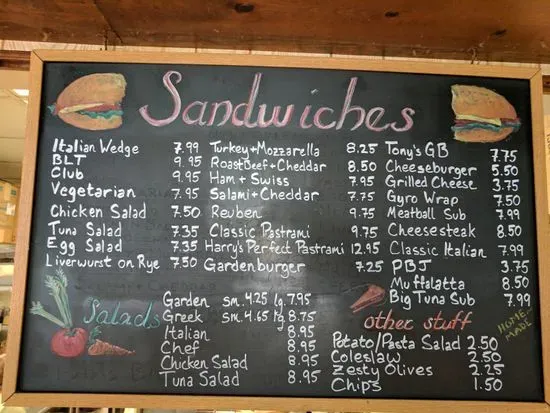 Sandwiches
Italian Wedge 7.99
BLT 9.95
Club 9.95
Vegetarian 7.95
Chicken Salad 7.50
Tuna Salad 7.35
Egg Salad 7.35
Liverwurst on Rye 7.50
Turkey + Mozzarella 8.25
Roast Beef + Cheddar 8.50
Ham + Swiss 7.95
Salami + Cheddar 7.75
Reuben 9.75
Classic Pastrami 9.75
Harry's Perfect Pastrami 12.95
Gardenburger 7.25
Tony's GB 7.75
Cheeseburger 5.50
Grilled Cheese 3.75
Gyro Wrap 7.50
Meatball Sub 7.99
Cheesesteak 8.50
Classic Italian 7.99
PBJ 3.75
Muffalatta 8.50
Big Tuna Sub 7.99
Salads
Garden sm. 4.25 lg. 7.95
Greek sm. 4.65 lg 8.75
Italian 8.95
Chef 8.95
Chicken Salad 8.95
Tuna Salad 8.95
other stuff
HOME-
MADE
Potato/Pasta Salad 2.50
Coleslaw 2.50
Zesty Olives 2.25
Chips 1.50